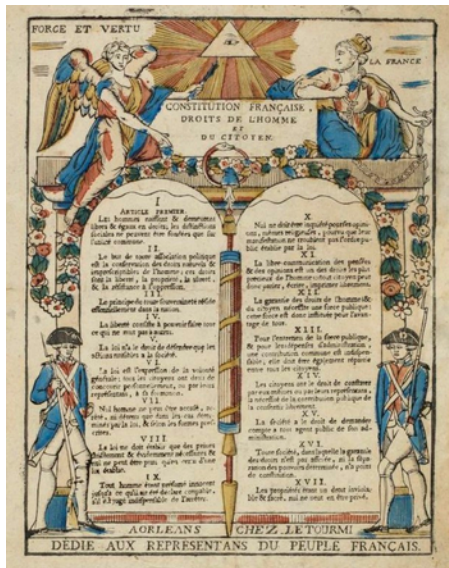 FORCE ET VERTU
LA FRANCE
CONSTITUTION FRANÇAISE,
DROITS DE L'HOMME
ET
DU CITOYEN.
I
ARTICLE PREMIER.
Les hommes naissent & demeurent
libres & égaux en droits, les distinctions
sociales ne peuvent être fondées que sur
l'utilité commune.
II.
Le but de toute association politique
est la conservation des droits naturels &
imprescriptibles de l'homme; ces droits
sont la liberté, la propriété, la sûreté,
& la résistance à l'oppression.
III
Le principe de toute souveraineté réside
essentiellement dans la nation.
IV.
La liberté consiste à pouvoir faire tout
ce qui ne nuit pas à autrui.
V.
La loi n'a le droit de défendre que les
actions nuisibles à la société.
VI.
La loi est l'expression de la volonté
générale; tous les citoyens ont droit de
concourir personnellement, ou par leurs
représentans, à sa formation.
VII.
Nul homme ne peut être accusé, arrêté,
ni détenu que dans les cas déterminés
par la loi, & selon les formes
prescrites.
VIII
La loi ne doit établir que des peines
strictement & évidemment nécessaires &
nul ne peut être puni qu'en vertu d'une
loi établie.
IX.
Tout homme étant présumé innocent
jusqu'à ce qu'il ait été déclaré coupable,
s'il est jugé indispensable de l'arrêter.
X.
Nul ne doit être inquiété pour ses opinions,
mêmes religieuses, pourvu que leur
manifestation ne trouble pas l'ordre public
établi par la loi.
XI.
La libre communication des pensées
& des opinions est un des droits les plus
précieux de l'homme: tout citoyen peut
donc parler, écrire, imprimer librement.
XII.
La garantie des droits de l'homme &
du citoyen nécessite une force publique:
cette force est donc instituée pour l'avantage
de tous.
XIII.
Pour l'entretien de la force publique,
& pour les dépenses d'administration,
une contribution commune est indispensable,
elle doit être également répartie
entre tous les citoyens.
XIV.
Les citoyens ont le droit de constater
par eux mêmes ou par leurs représentans,
la nécessité de la contribution publique de
la consentir librement.
XV.
La société a le droit de demander
compte à tout agent public de son
administration.
XVI.
Toute société, dans laquelle la garantie
des droits n'est pas assurée, ni la séparation
des pouvoirs déterminée, n'a point
de constitution.
XVII.
Les propriétés étant un droit inviolable
& sacré, nul ne peut en être privé.
A ORLEANS CHEZ LETOURMI
DÉDIÉ AUX REPRÉSENTANS DU PEUPLE FRANÇAIS.